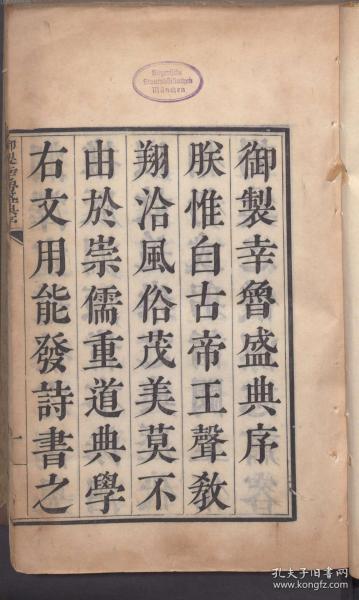 御製幸魯盛典序
朕惟自古帝王聲敎
翔洽風俗茂美莫不
由於崇儒重道典學
右文用能發詩書之
御製幸魯盛典序
一
Bayerische
Staatsbibliothek
München
孔夫子旧书网